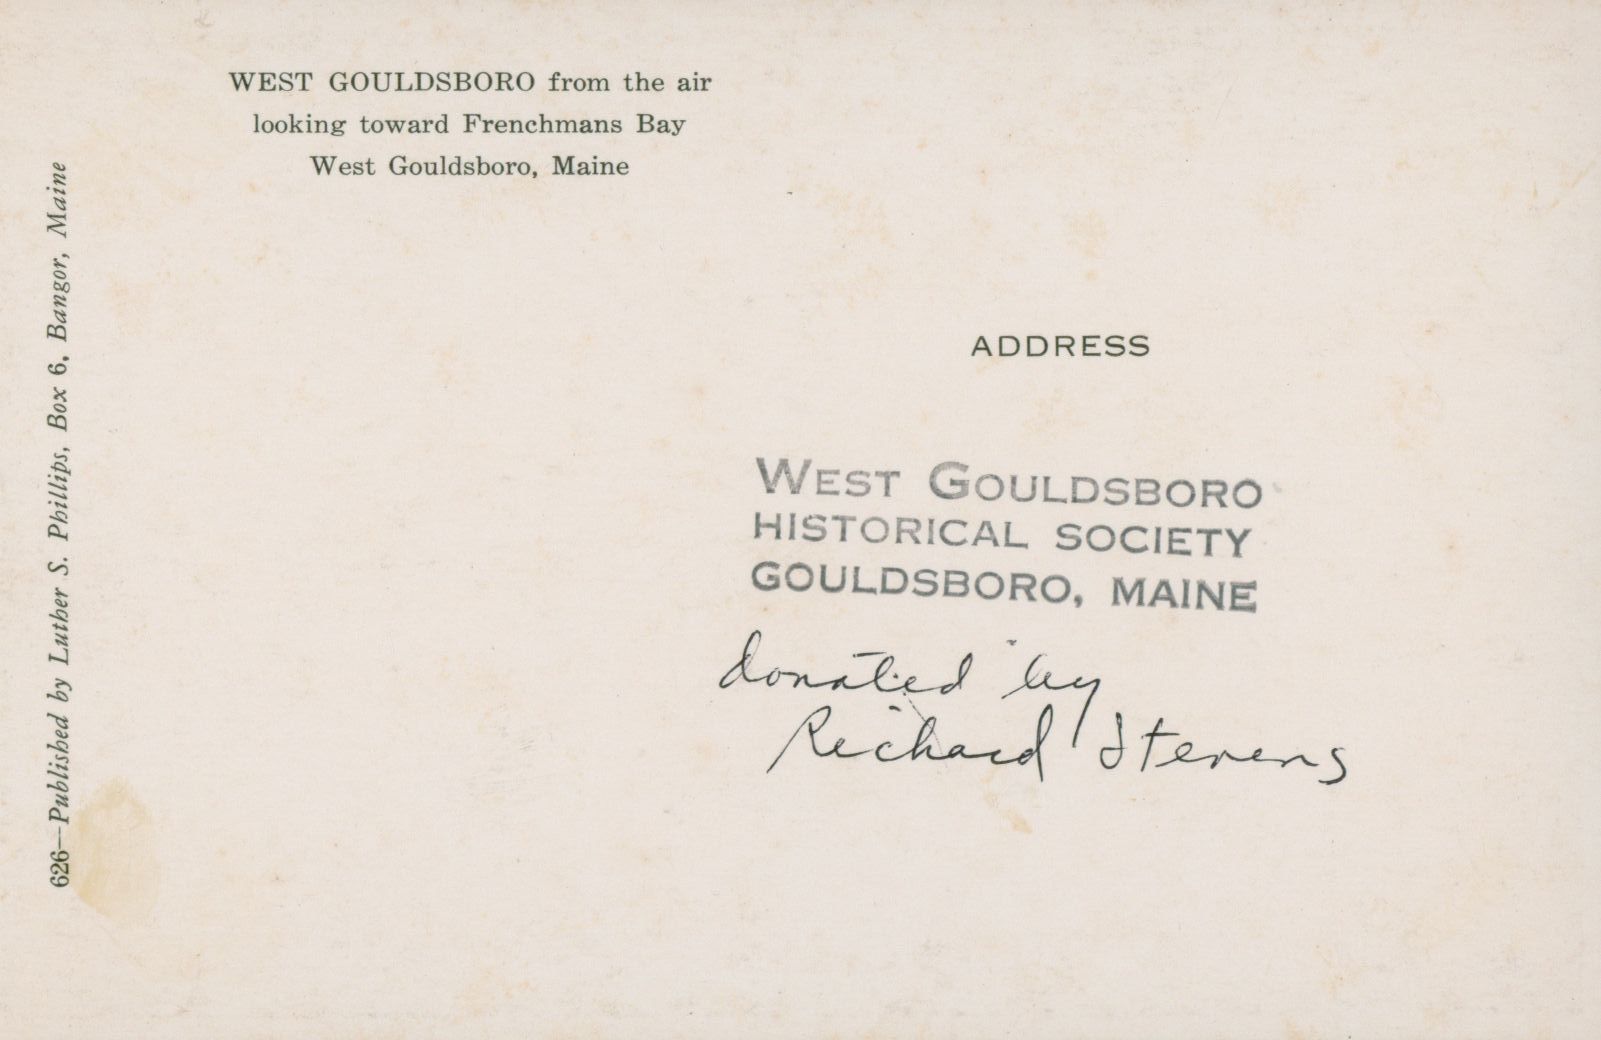 WEST GOULDSBORO from the air
looking toward Frenchmans Bay
West Gouldsboro, Maine
626—Published by Luther S. Phillips, Box 6, Bangor, Maine
ADDRESS
WEST GOULDSBORO
HISTORICAL SOCIETY
GOULDSBORO, MAINE
donated by
Richard Stevens